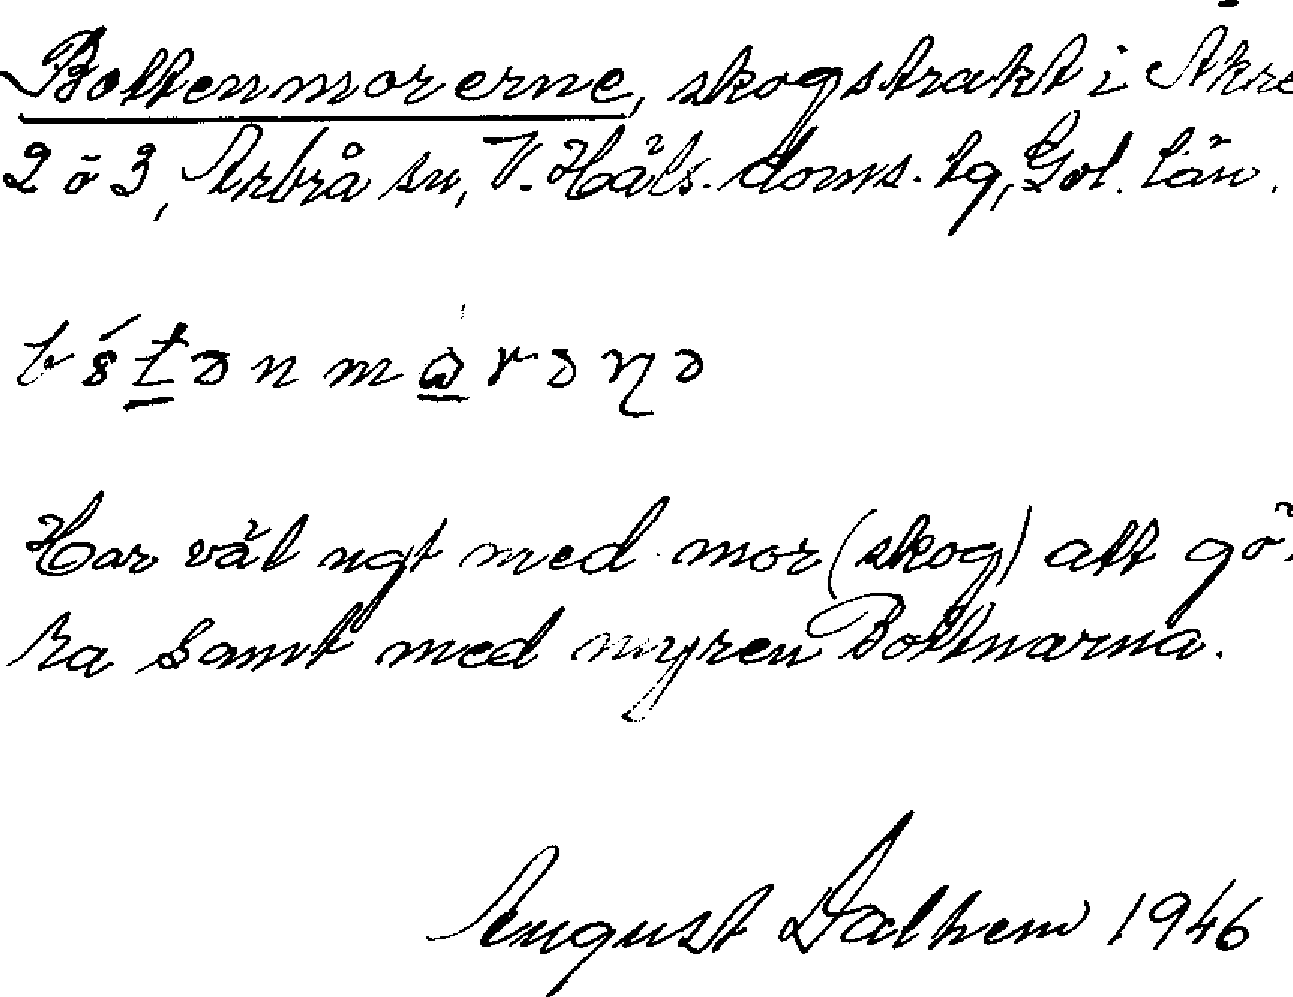 Bottenmorerne, skogstrakt i Åkre
2 o 3, Arbrå sn, V. Häls. doms. lg, Gvl. län.
Har väl ngt med mor (skog) att gö-
ra samt med myren Bottnarna.
August Dalhem 1946